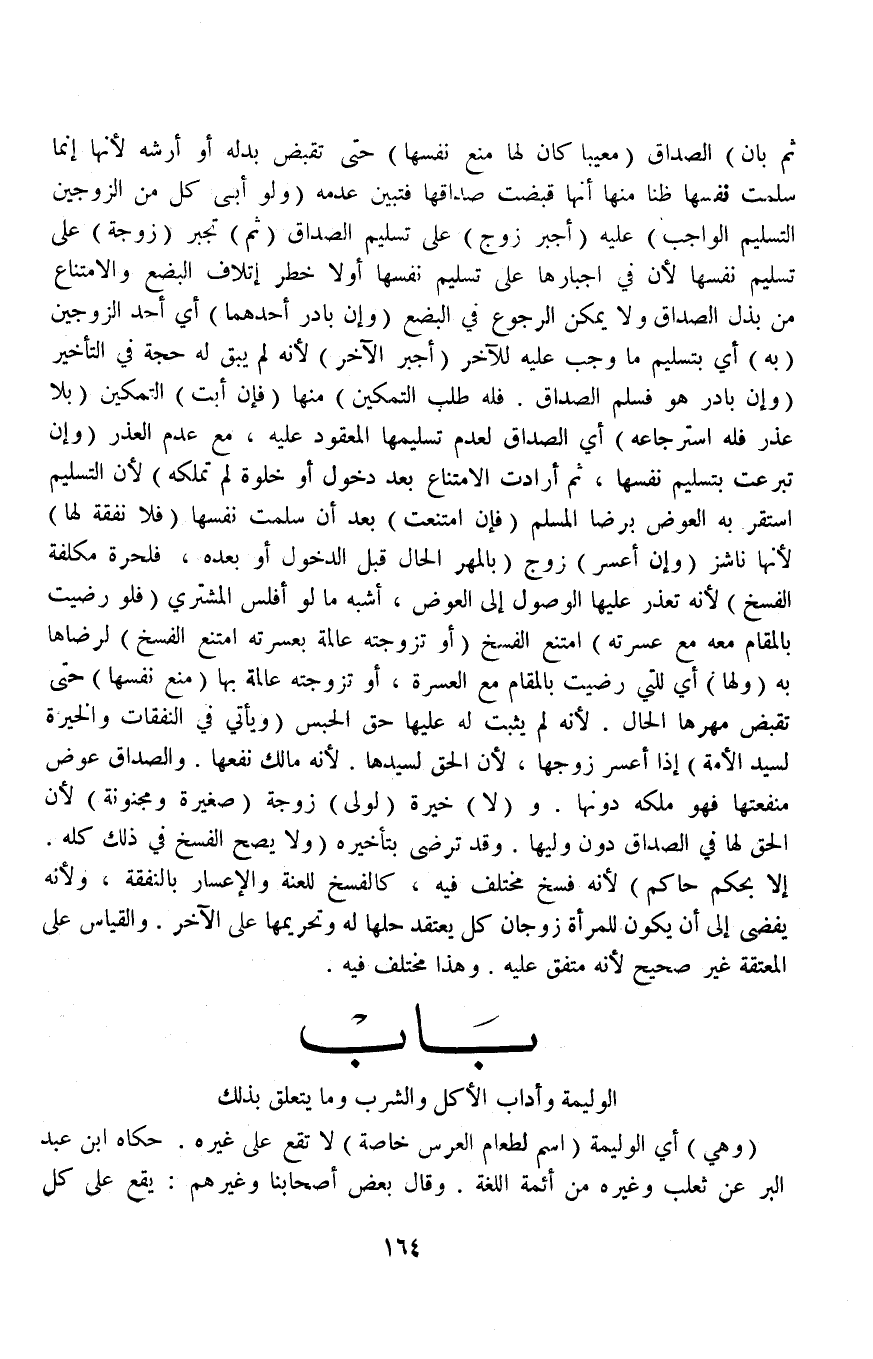 ثم بان ) الصداق ( معيبا كان لها منع نفسها ) حتى تقبض بدله أو أرشه لأنها إنما
سلمت نفسها ظنا منها أنها قبضت صداقها فتبين عدمه ( ولو أبى كل من الزوجين
التسليم الواجب ) عليه ( أجبر زوج ) على تسليم الصداق ( ثم ) تجبر ( زوجة ) على
تسليم نفسها لأن في اجبارها على تسليم نفسها أولا خطر إتلاف البضع والامتناع
من بذل الصداق ولا يمكن الرجوع في البضع ( وإن بادر أحدهما ) أي أحد الزوجين
( به ) أي بتسليم ما وجب عليه للآخر ( أجبر الآخر ) لأنه لم يبق له حجة في التأخير
( وإن بادر هو فسلم الصداق . فله طلب التمكين ) منها ( فإن أبت ) التمكين ( بلا
عذر فله استرجاعه ) أي الصداق لعدم تسليمها المعقود عليه ، مع عدم العذر ( وإن
تبرعت بتسليم نفسها ، ثم أرادت الامتناع بعد دخول أو خلوة لم تملكه ) لأن التسليم
استقر به العوض برضا المسلم ( فإن امتنعت ) بعد أن سلمت نفسها ( فلا نفقة لها )
لأنها ناشز ( وإن أعسر ) زوج ( بالمهر الحال قبل الدخول أو بعده ، فلحرة مكلفة
الفسخ ) لأنه تعذر عليها الوصول إلى العوض ، أشبه ما لو أفلس المشتري ( فلو رضيت
بالمقام معه مع عسرته ) امتنع الفسخ ( أو تزوجته عالمة بعسرته امتنع الفسخ ) لرضاها
به ( ولها ) أي للتي رضيت بالمقام مع العسرة ، أو تزوجته عالمة بها ( منع نفسها ) حتى
تقبض مهرها الحال . لأنه لم يثبت له عليها حق الحبس ( ويأتي في النفقات والخيرة
لسيد الأمة ) إذا أعسر زوجها ، لأن الحق لسيدها . لأنه مالك نفعها . والصداق عوض
منفعتها فهو ملكه دونها . و ( لا ) خيرة ( لولى ) زوجة ( صغيرة ومجنونة ) لأن
الحق لها في الصداق دون وليها . وقد ترضى بتأخيره ( ولا يصح الفسخ في ذلك كله .
إلا بحكم حاكم ) لأنه فسخ مختلف فيه ، كالفسخ للعنة والإعسار بالنفقة ، ولأنه
يفضى إلى أن يكون للمرأة زوجان كل يعتقد حلها له وتحريمها على الآخر . والقياس على
المعتقة غير صحيح لأنه متفق عليه . وهذا مختلف فيه .
بَابْ
الوليمة وأداب الأكل والشرب وما يتعلق بذلك
( وهي ) أي الوليمة ( اسم لطعام العرس خاصة ) لا تقع على غيره . حكاه ابن عبد
البر عن ثعلب وغيره من أئمة اللغة . وقال بعض أصحابنا وغيرهم : يقع على كل
١٦٤